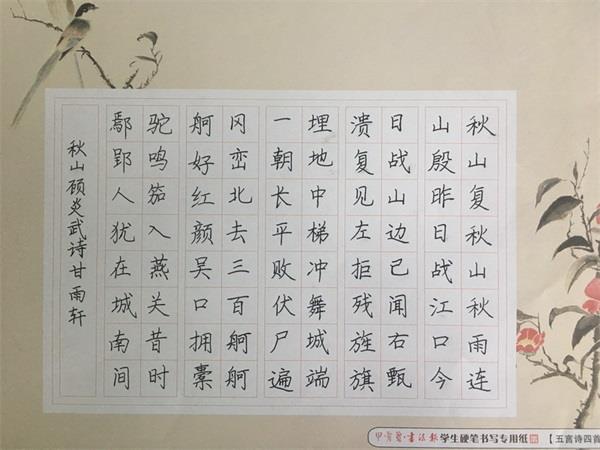 秋山复秋山秋雨连
山殷昨日战江口今
日战山边已闻右甄
溃复见左拒残旌旗
埋地中梯冲舞城端
一朝长平败伏尸遍
冈峦北去三百舸舸
舸好红颜吴口拥橐
驼鸣笳入燕关昔时
鄢郢人犹在城南间
秋山顾炎武诗甘雨轩
书法报 学生硬笔书写专用纸 【五言诗四首